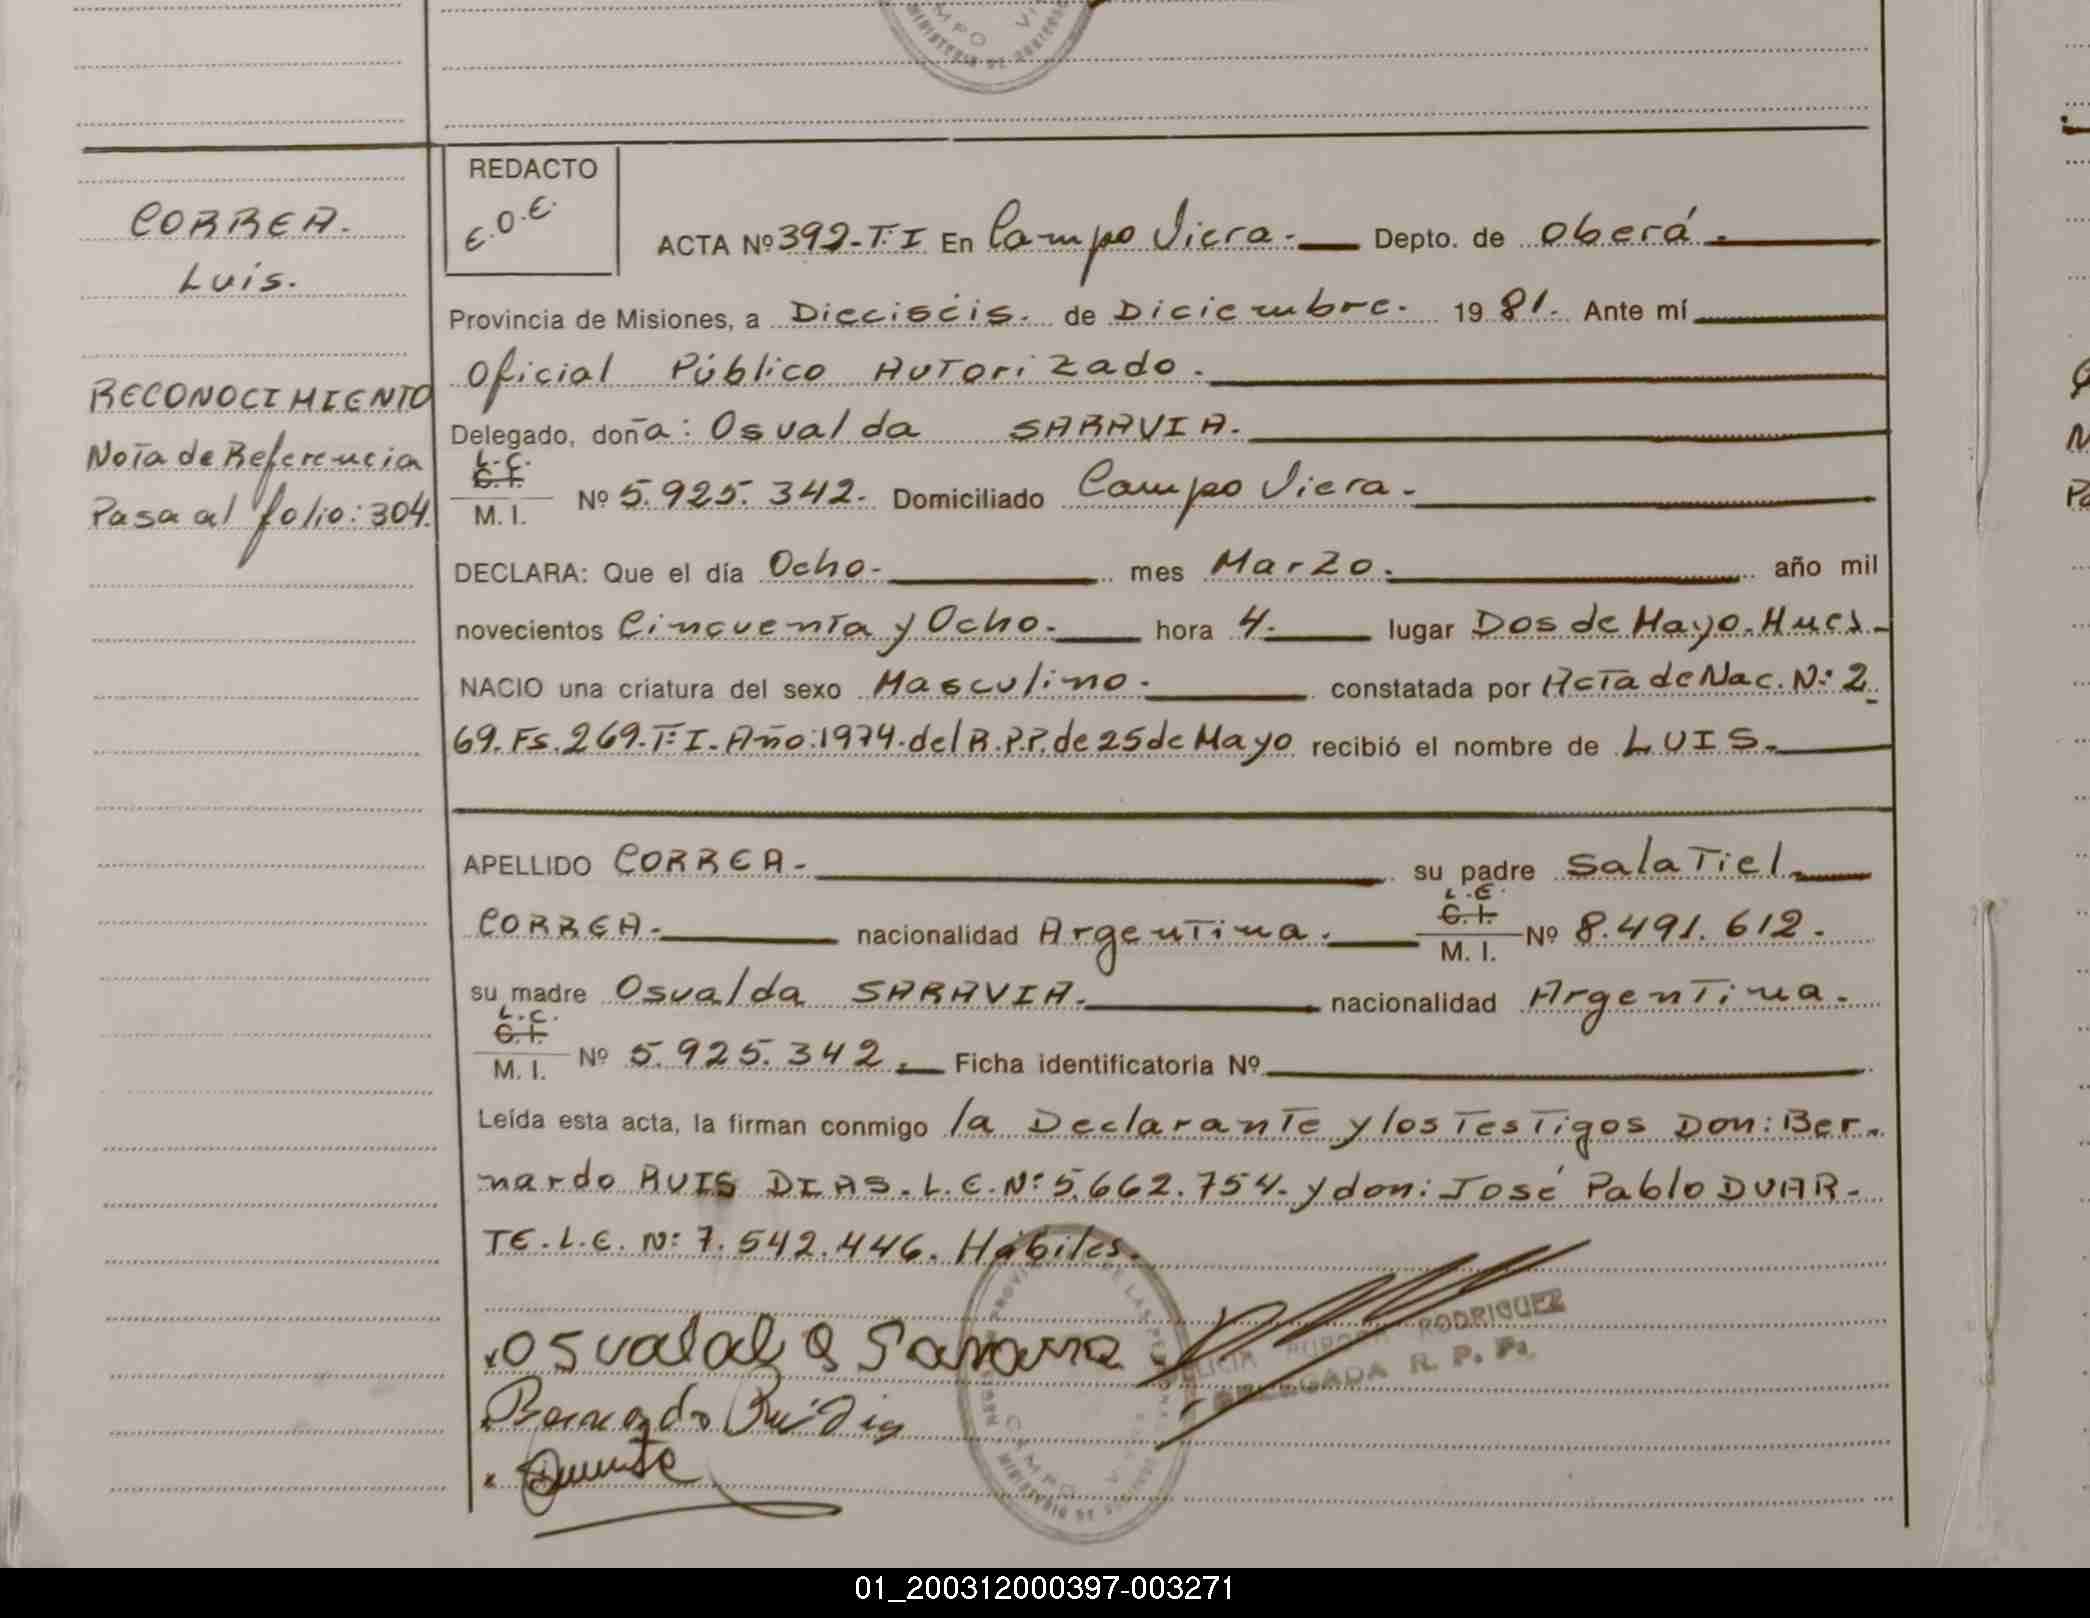 CORREA.
Luis.
RECONOCIMIENTO
Nota de Referencia
Pasa al folio: 304.
REDACTO
E.O.E.
ACTA Nº 392-T:I En Campo Viera. Depto. de Oberá.
Provincia de Misiones, a Dieciséis. de Diciembre. 1981. Ante mí
Oficial Público Autorizado.
Delegado, doña: Osvalda SARAVIA.
L.C.
C.I.
M. I. Nº 5.925.342. Domiciliado Campo Viera.
DECLARA: Que el día Ocho. mes Marzo. año mil
novecientos Cincuenta y Ocho. hora 4. lugar Dos de Mayo.
NACIO una criatura del sexo Masculino. constatada por Acta de Nac. N: 2
69. Fs. 269. T:I. Año: 1974. del R.P.P. de 25 de Mayo recibió el nombre de LUIS.
APELLIDO CORREA. su padre Salatiel
CORREA. nacionalidad Argentina. L.E. C.I. M. I. Nº 8.491.612.
su madre Osvalda SARAVIA. nacionalidad Argentina.
L.C.
C.I.
M. I. Nº 5.925.342. Ficha identificatoria Nº
Leída esta acta, la firman conmigo la Declarante y los Testigos Don: Ber-
nardo RUIS DIAS. L.E. N: 5.662.754. y don: José Pablo DUAR-
TE. L.E. N: 7.542.446. Hábiles.
RODRIGUEZ
DELEGADA R. P. P.
01_200312000397-003271